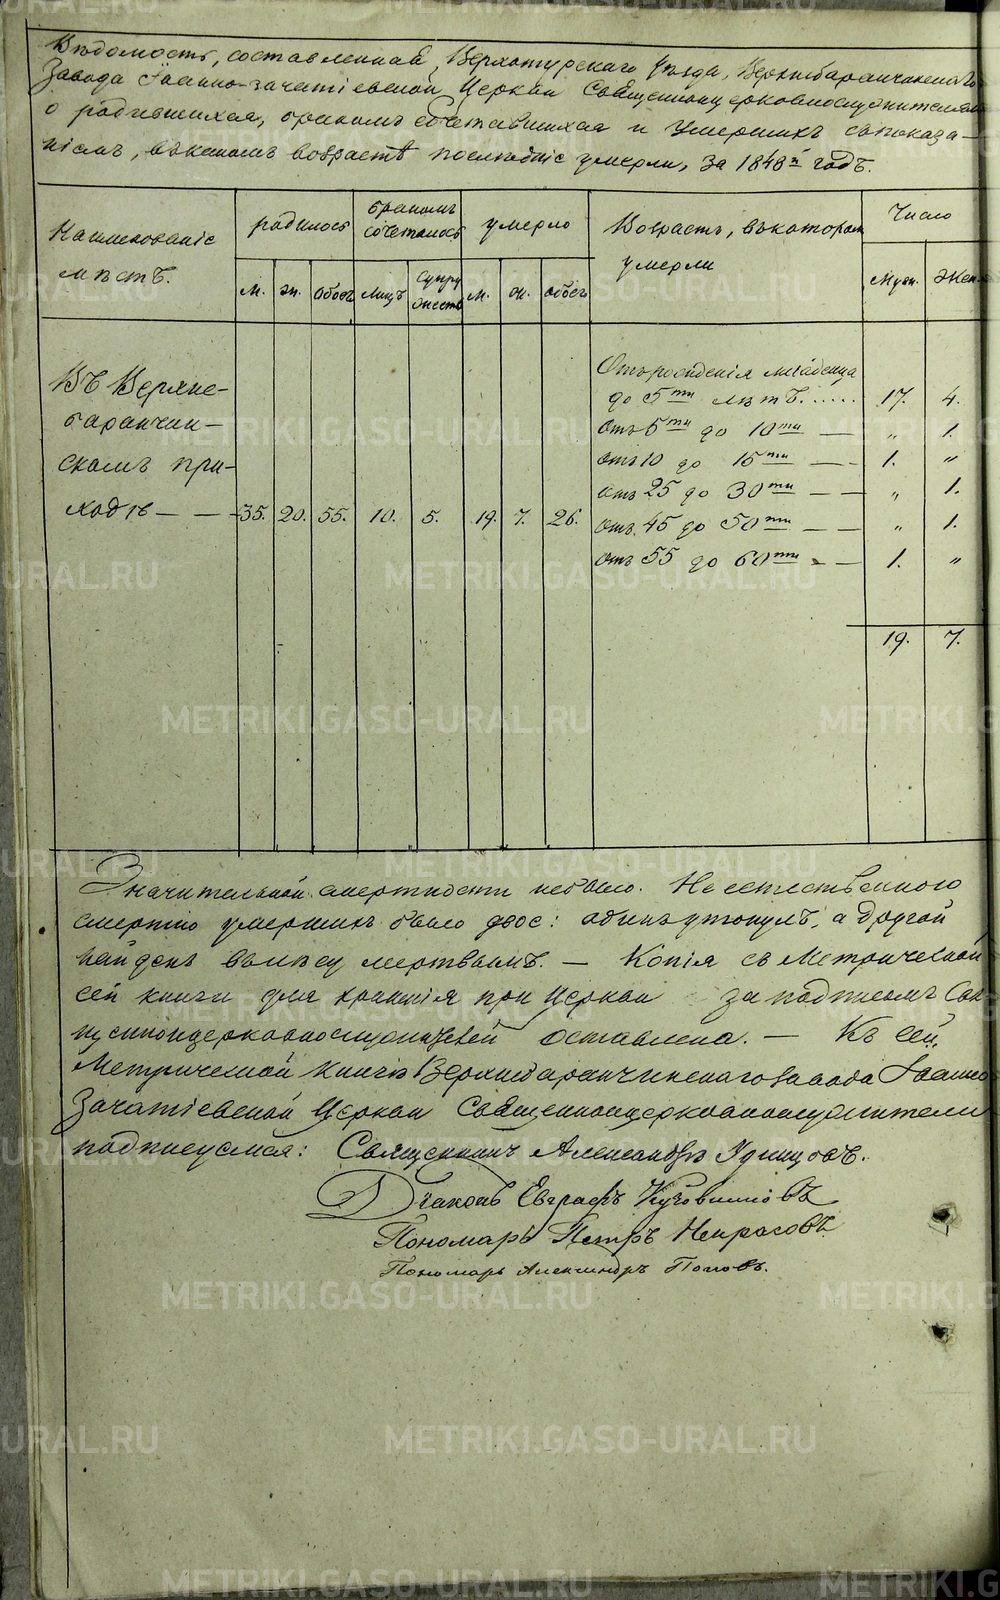 Вѣдомость, составленная, Верхотурскаго Уѣзда, Верхнебаранчинскаго
Завода Іоанно-зачатіевской Церкви Священноцерковнослужителями
о родившихся, бракомъ сочетавшихся и умершихъ съ показа-
ніемъ, въ какомъ возрастѣ послѣдніе умерли, за 1848й годъ.
Наименованіе
мѣстъ.
родилось
бракомъ
сочеталось
умерло
Возрастъ, въ которомъ
умерли
Число
м. жн. обоег
Лицъ
Супру
жеств
м. ж. обоег
Муж. Жен.
Въ Верхне-
баранчин-
скомъ при-
ходѣ — — 35. 20. 55. 10. 5. 19. 7. 26.
Отъ рожденія младенца
до 5ти лѣтъ...... 17. 4.
Отъ 5ти до 10ти — „ 1.
Отъ 10 до 15ти — — 1. „
Отъ 25 до 30ти — — „ 1.
Отъ 45 до 50ти — — „ 1.
Отъ 55 до 60ти - — 1. „
19. 7.
Значительной смертности небыло. Не естественною
смертію умершихъ было двое: одинъ утонулъ, а другой
найденъ въ лѣсу мертвымъ. — Копія съ Метрической
сей книги для храненія при Церкви за подписомъ Свя
щенноцерковнослужителей оставлена. — Къ сей
Метрической книгѣ Верхнебаранчинскаго завода Іоанно
Зачатіевской Церкви Священноцерковнослужители
подписуемся: Священникъ Александръ Удинцовъ.
Діаконъ Евграфъ
Пономарь Петръ Некрасовъ.
Пономарь Александръ Поповъ.
METRIKI.GASO-URAL.RU